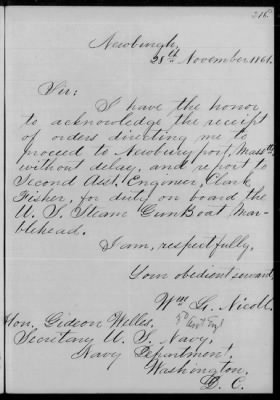 216.
Newburgh,
28th November 1861.
Sir:
I have the honor
to acknowledge the receipt
of orders directing me to
proceed to Newburyport, Masstts
without delay, and report to
Second Asst. Engineer, Clark
Fisher, for duty on board the
U. S. Steam Gun Boat, Mar-
blehead.
I am, respectfully,
Your obedient servant,
Wm G. Nicoll.
3d Asst Engr
Hon. Gideon Welles,
Secretary U. S. Navy,
Navy Department,
Washington,
D. C.